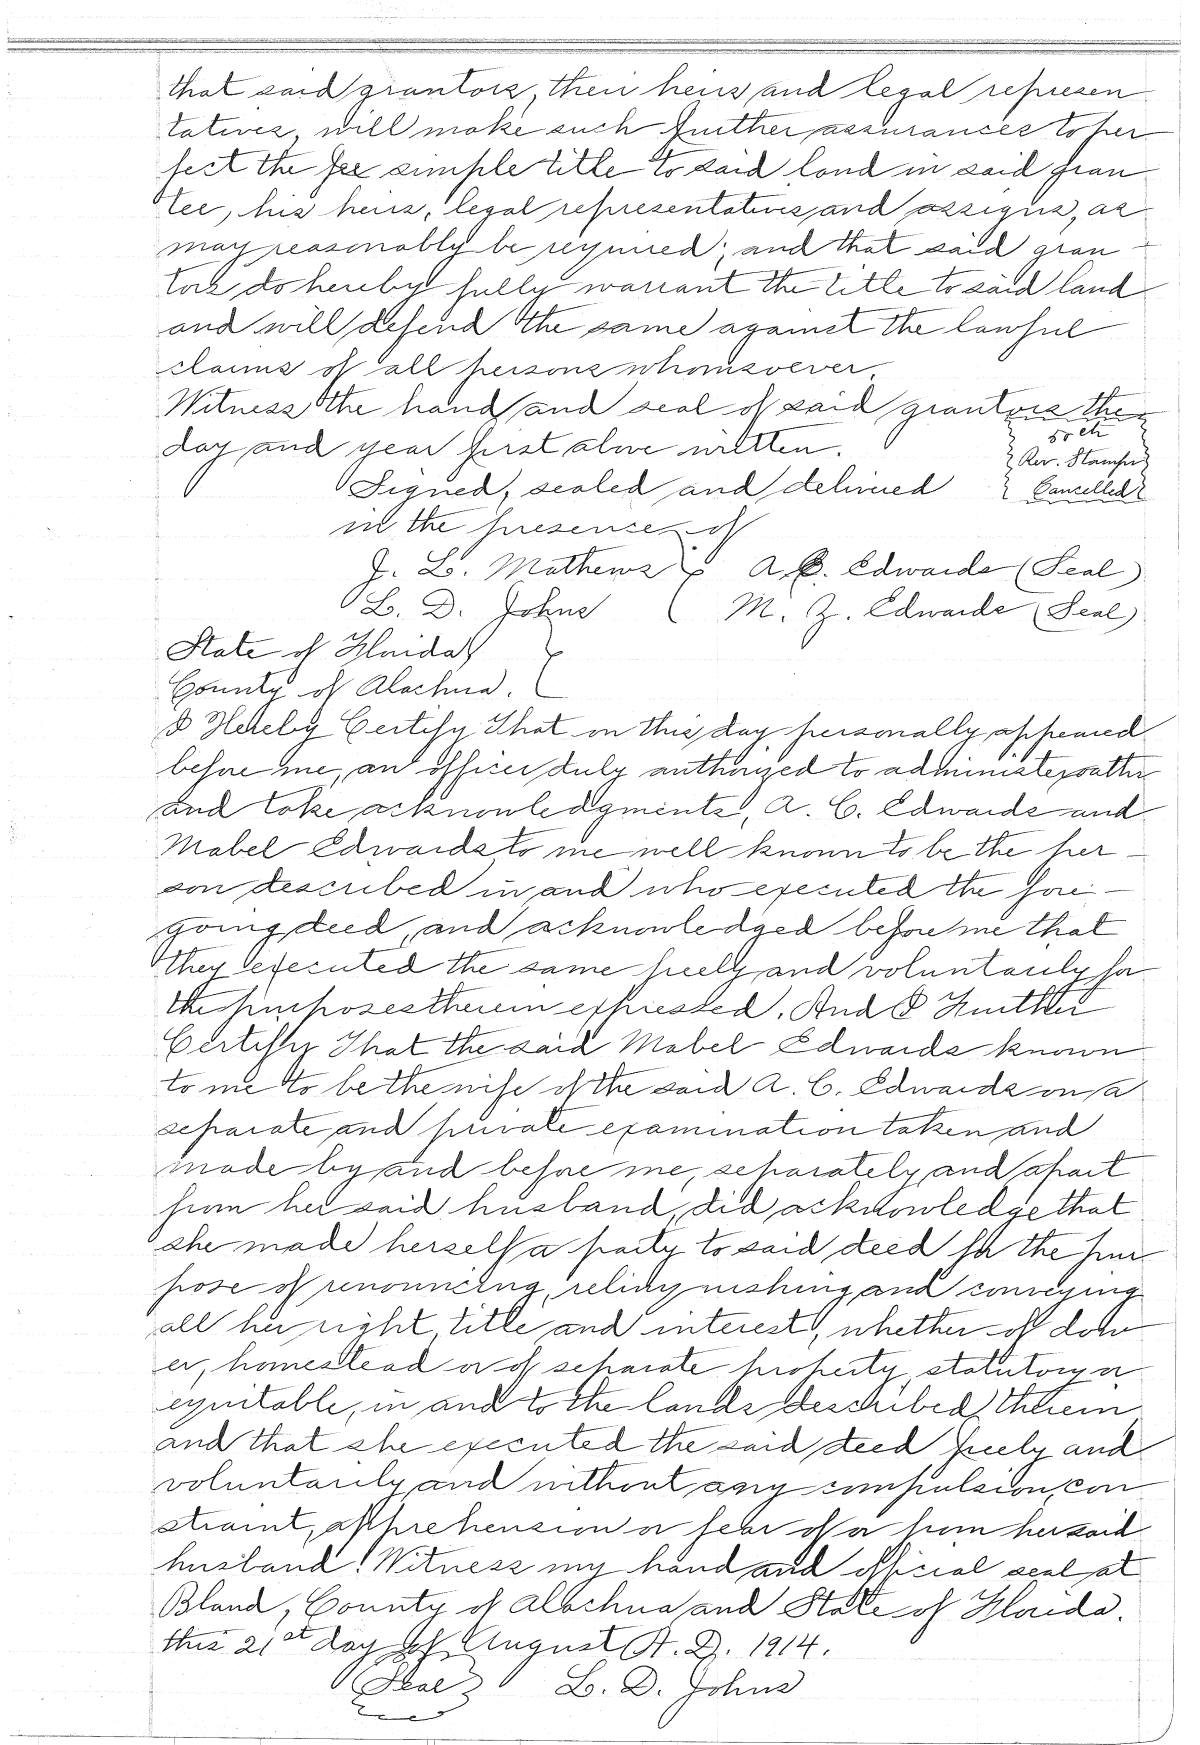 that said grantors, their heirs and legal represen
tatives, will make such further assurances to per
fect the fee simple title to said land in said gran
tee, his heirs, legal representatives and assigns, as
may reasonably be required; and that said gran
tors do hereby fully warrant the title to said land
and will defend the same against the lawful
claims of all persons whomsoever.
Witness the hand and seal of said grantors the
day and year first above written.
50 cts
Rev. Stamps
Cancelled
Signed, sealed and delivered
in the presence of
J. L. Mathews A. C. Edwards (Seal)
L. D. Johns M. Z. Edwards (Seal)
State of Florida
County of Alachua.
I Hereby Certify That on this day personally appeared
before me, an officer duly authorized to administer oaths
and take acknowledgments, A. C. Edwards and
Mabel Edwards to me well known to be the per-
son described in and who executed the fore-
going deed, and acknowledged before me that
they executed the same freely and voluntarily for
the purposes therein expressed. And I Further
Certify That the said Mabel Edwards known
to me to be the wife of the said A. C. Edwards on a
separate and private examination taken and
made by and before me, separately and apart
from her said husband, did acknowledge that
she made herself a party to said deed for the pur
pose of renouncing, relinquishing and conveying
all her right, title and interest, whether of dow
er, homestead or of separate property, statutory or
equitable, in and to the lands described therein
and that she executed the said deed freely and
voluntarily and without any compulsion, con
straint, apprehension or fear of or from her said
husband. Witness my hand and official seal at
Bland, County of Alachua and State of Florida.
this 21st day of August A. D. 1914.
(Seal) L. D. Johns